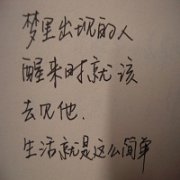 梦里出现的人
醒来时就该
去见他.
生活就是这么简单